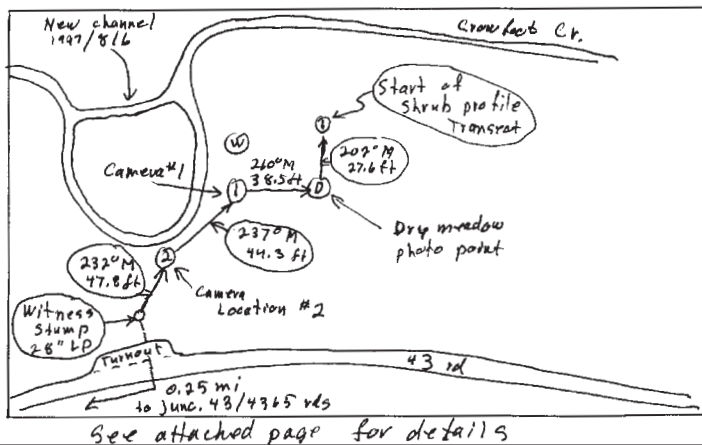 New channel
1997/8/6
Crowfoot Cr.
Start of
Shrub profile
Transect
S
W
Camera #1
260°M
38.5ft
202°M
27.6 ft
1
D
Dry meadow
photo point
237°M
44.3 ft
232°M
47.8 ft
2
Camera
Location #2
Witness
Stump
28" LP
Turnout
43 rd
0.25 mi
to junc. 43/4365 rds
See attached page for details